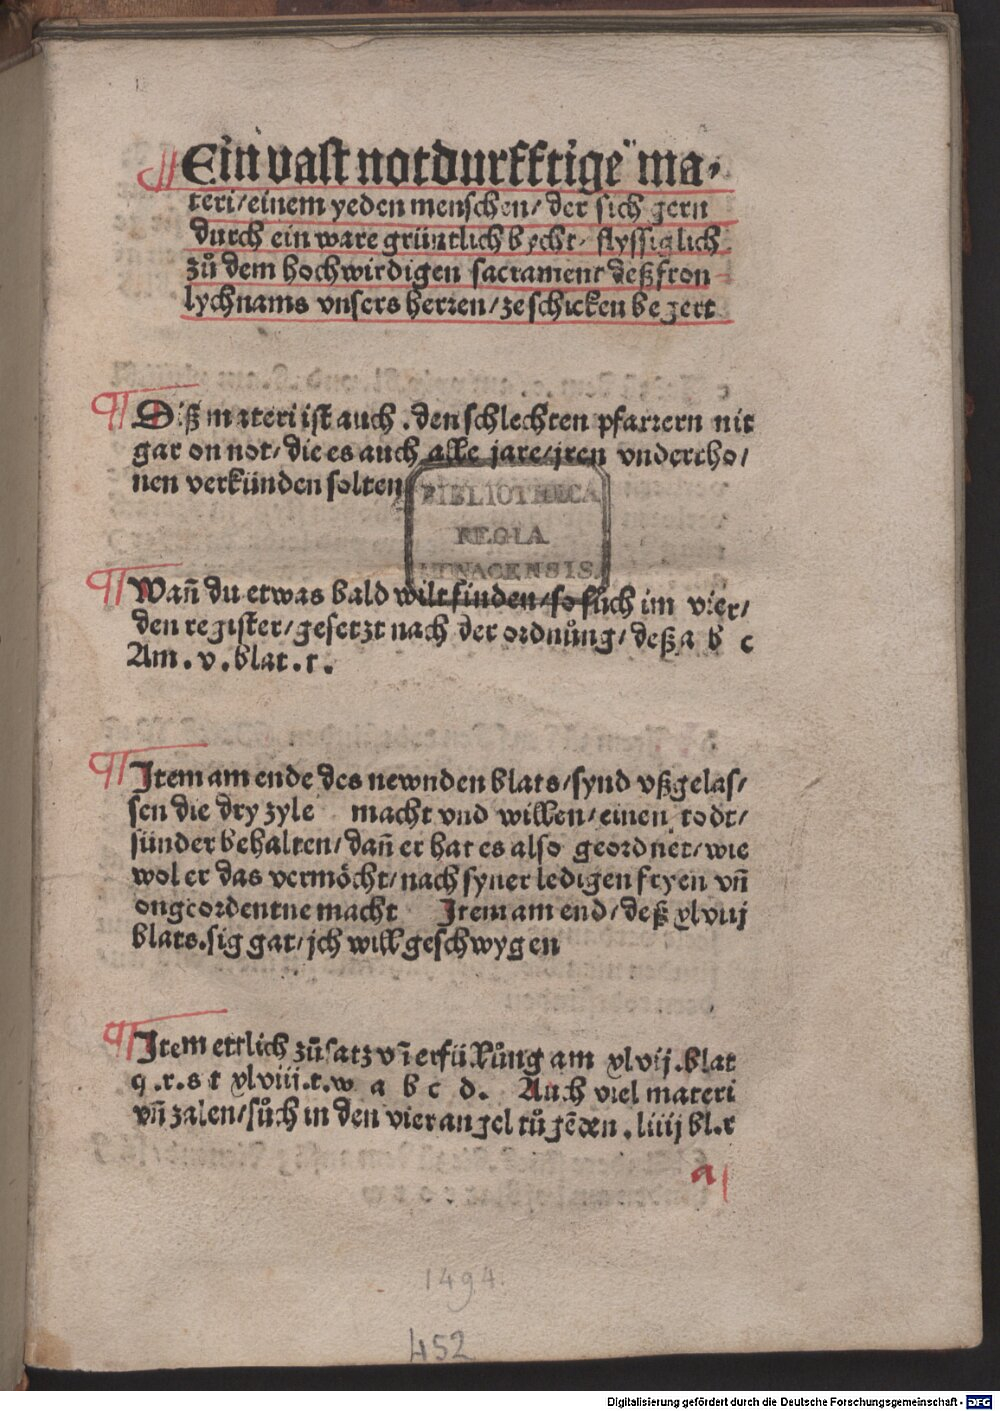 Ein vast notdurfftige ma-
teri/ einem yeden menschen/ der sich gern
durch ein ware grüntlich bycht/ flyssiglich
zů dem hochwirdigen sacrament deß fron
lychnams vnsers herren/ ze schicken begert
¶ Diß materi ist auch . den schlechten pfarrern nit
gar on not/ die es auch alle jare/ jren vndertho/
nen verkünden solten
BIBLIOTHECA
REGIA
MONACENSIS.
¶ Wañ du etwas bald wilt finden/ so sůch im vier/
den register/ gesetzt nach der ordnůng/ deß a b c
Am . v . blat . r .
¶ Item am ende des newnden blats/ synd vßgelas/
sen die dry zyle macht vnd willen/ einen todt/
sünder behalten/ dañ er hat es also geordnet/ wie
wol er das vermöcht/ nach syner ledigen fryen vñ
ongeordentne macht Item am end/ deß xlviij
blats . sig gar/ jch will geschwygen
¶ Item ettlich zůsatz vñ erfüllůng am xlvij . blat
q . r . s t xlviij . t . w a b c d . Auch viel materi
vñ zalen/ sůch in den vier angel tůgēden . liiij bl . r
a
1494.
452
Digitalisierung gefördert durch die Deutsche Forschungsgemeinschaft - DFG